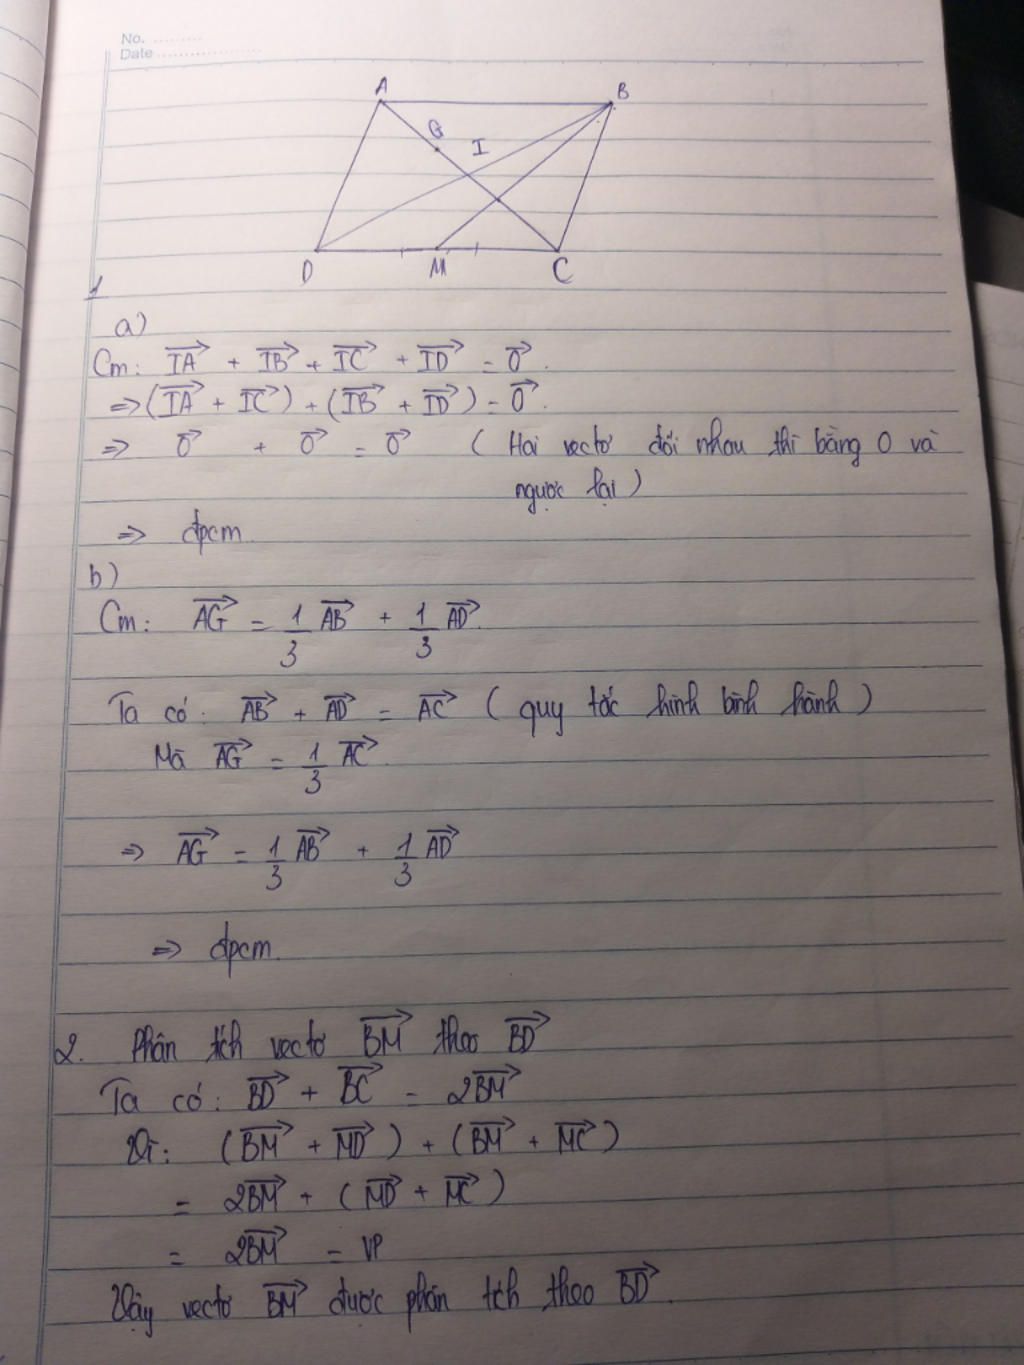 No. ..........
Date ....................
A
B
G
I
D
M
C
1
a)
Cm: IA→ + IB→ + IC→ + ID→ = 0→.
=> (IA→ + IC→) + (IB→ + ID→) = 0→.
=> 0→ + 0→ = 0→ ( Hai vectơ đối nhau thì bằng 0 và
ngược lại )
=> đpcm.
b)
Cm: AG→ = 1/3 AB→ + 1/3 AD→.
Ta có: AB→ + AD→ = AC→ ( quy tắc hình bình hành )
Mà AG→ = 1/3 AC→.
=> AG→ = 1/3 AB→ + 1/3 AD→
=> đpcm.
2. Phân tích vectơ BM→ theo BD→
Ta có: BD→ + BC→ = 2BM→
Vì: (BM→ + MD→) + (BM→ + MC→)
= 2BM→ + (MD→ + MC→)
= 2BM→ = VP
Vậy vectơ BM→ được phân tích theo BD→.